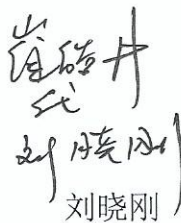 崔皓升
代
刘晓刚
刘晓刚